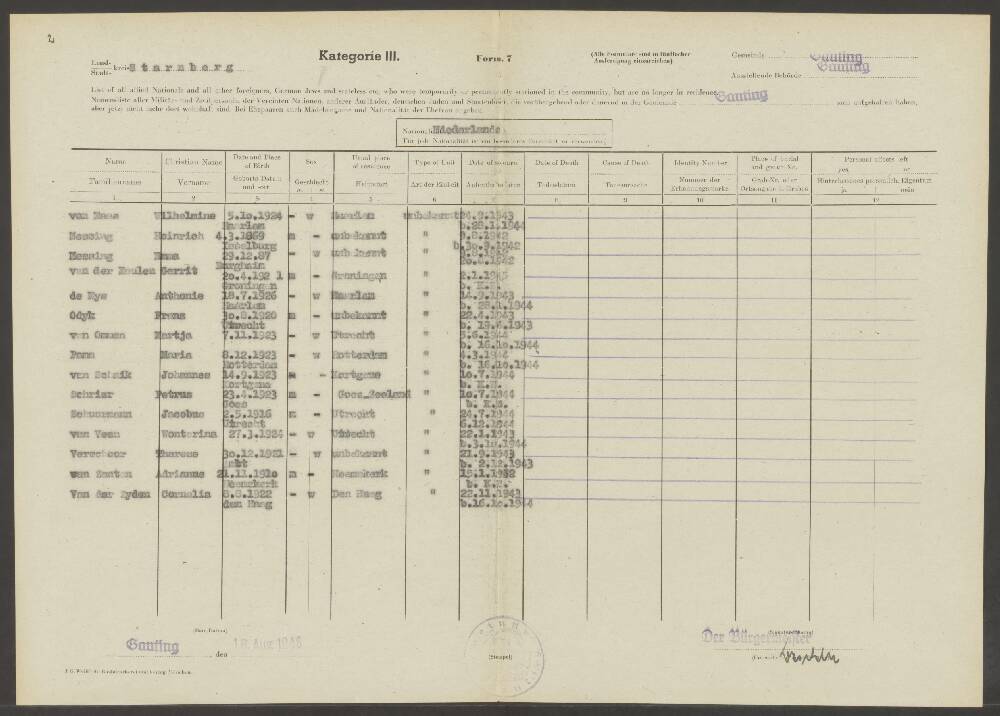 2
Kategorie III.
Form. 7
(Alle Formulare sind in fünffacher
Ausfertigung einzureichen)
Gemeinde Gauting
Gauting
Land-
Stadt- kreis Starnberg
Ausstellende Behörde
List of all allied Nationals and all other foreigners, German Jews and stateless etc. who were temporarily or permanently stationed in the community, but are no longer in residence.
Namensliste aller Militär- und Zivilpersonen der Vereinten Nationen, anderer Ausländer, deutschen Juden und Staatenloser, die vorübergehend oder dauernd in der Gemeinde Gauting sich aufgehalten haben,
aber jetzt nicht mehr dort wohnhaft sind. Bei Ehepaaren auch Mädchenname und Nationalität der Ehefrau angeben.
Niederlande
Name Christian Name Date and Place of Birth Sex Usual place of residence Type of Unit Date of Death Cause of Death Identity Number Place of burial and grave-No. Personal effects left
yes no
Familienname Vorname Geburts-Datum und -ort Geschlecht m. w. Heimatort Art der Einheit Aufenthaltsdaten Todesdatum Todesursache Nummer der Erkennungsmarke Grab-Nr. oder Ortsangabe d. Grabes Hinterlassenes persönlich. Eigentum
ja nein
1 2 3 4 5 6 7 8 9 10 11 12
von Haas Wilhelmine 5.10.1924 - w Haarlem unbekannt 24.9.1943
Haarlem b.28.1.1944
Messing Heinrich 4.3.1869 m - unbekannt "
Isselburg b.30.9.1942
Messing 29.12.87 - w unbekannt "
van der Meulen Gerrit 20.4.192 1 m - Groningen " 2.1.1945
Groningen b. K.E.
de Nys Anthonie 18.7.1926 - w Haarlem " 14.9.1943
Haarlem b. 28.1.1944
Odyk Frans 30.8.1920 m - unbekannt " 22.4.1943
Utrecht b. 19.6.1943
Hartje 7.11.1923 - w Utrecht " 5.6.1944
b. 16.10.1944
Maria 8.12.1923 - w Rotterdam " 4.3.1944
Rotterdam b. 16.10.1944
Johannes 14.9.1923 m - Kortgene " 10.7.1944
Kortgene b. K.E.
Schrier Petrus 23.4.1923 m - Goes-Zeeland " 10.7.1944
Goes b. K.E.
Schuurmann Jacobus 2.5.1916 m - Utrecht " 24.7.1944
Utrecht 6.12.1944
van Veen Wonterina 27.3.1924 - w Utrecht " 22.1.1943
b.3.10.1944
Therese 30.12.1921 - w unbekannt " 21.9.1943
b. 2.12.1943
van Zanten Adrianus 21.11.1910 m - Heemskerk "
Heemskerk b. K.E.
Van der Eyden Cornelia 8.8.1922 - w Den Haag " 22.11.1943
den Haag b.16.10.1944
Gauting, den 18. Aug. 1946
(Stempel)
Der Bürgermeister